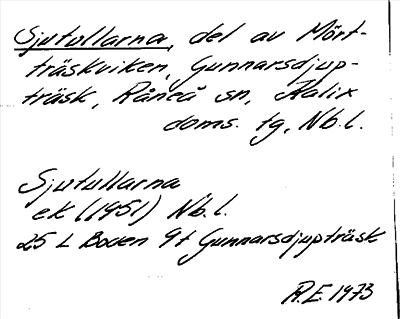 Sjutullarna, del av Mört-
träskviken, Gunnarsdjup-
träsk, Råneå sn, Kalix
doms. tg, Nb.l.
Sjutullarna
ek (1951) Nb.l.
25 L Boden 9f Gunnarsdjupträsk
R.E. 1973